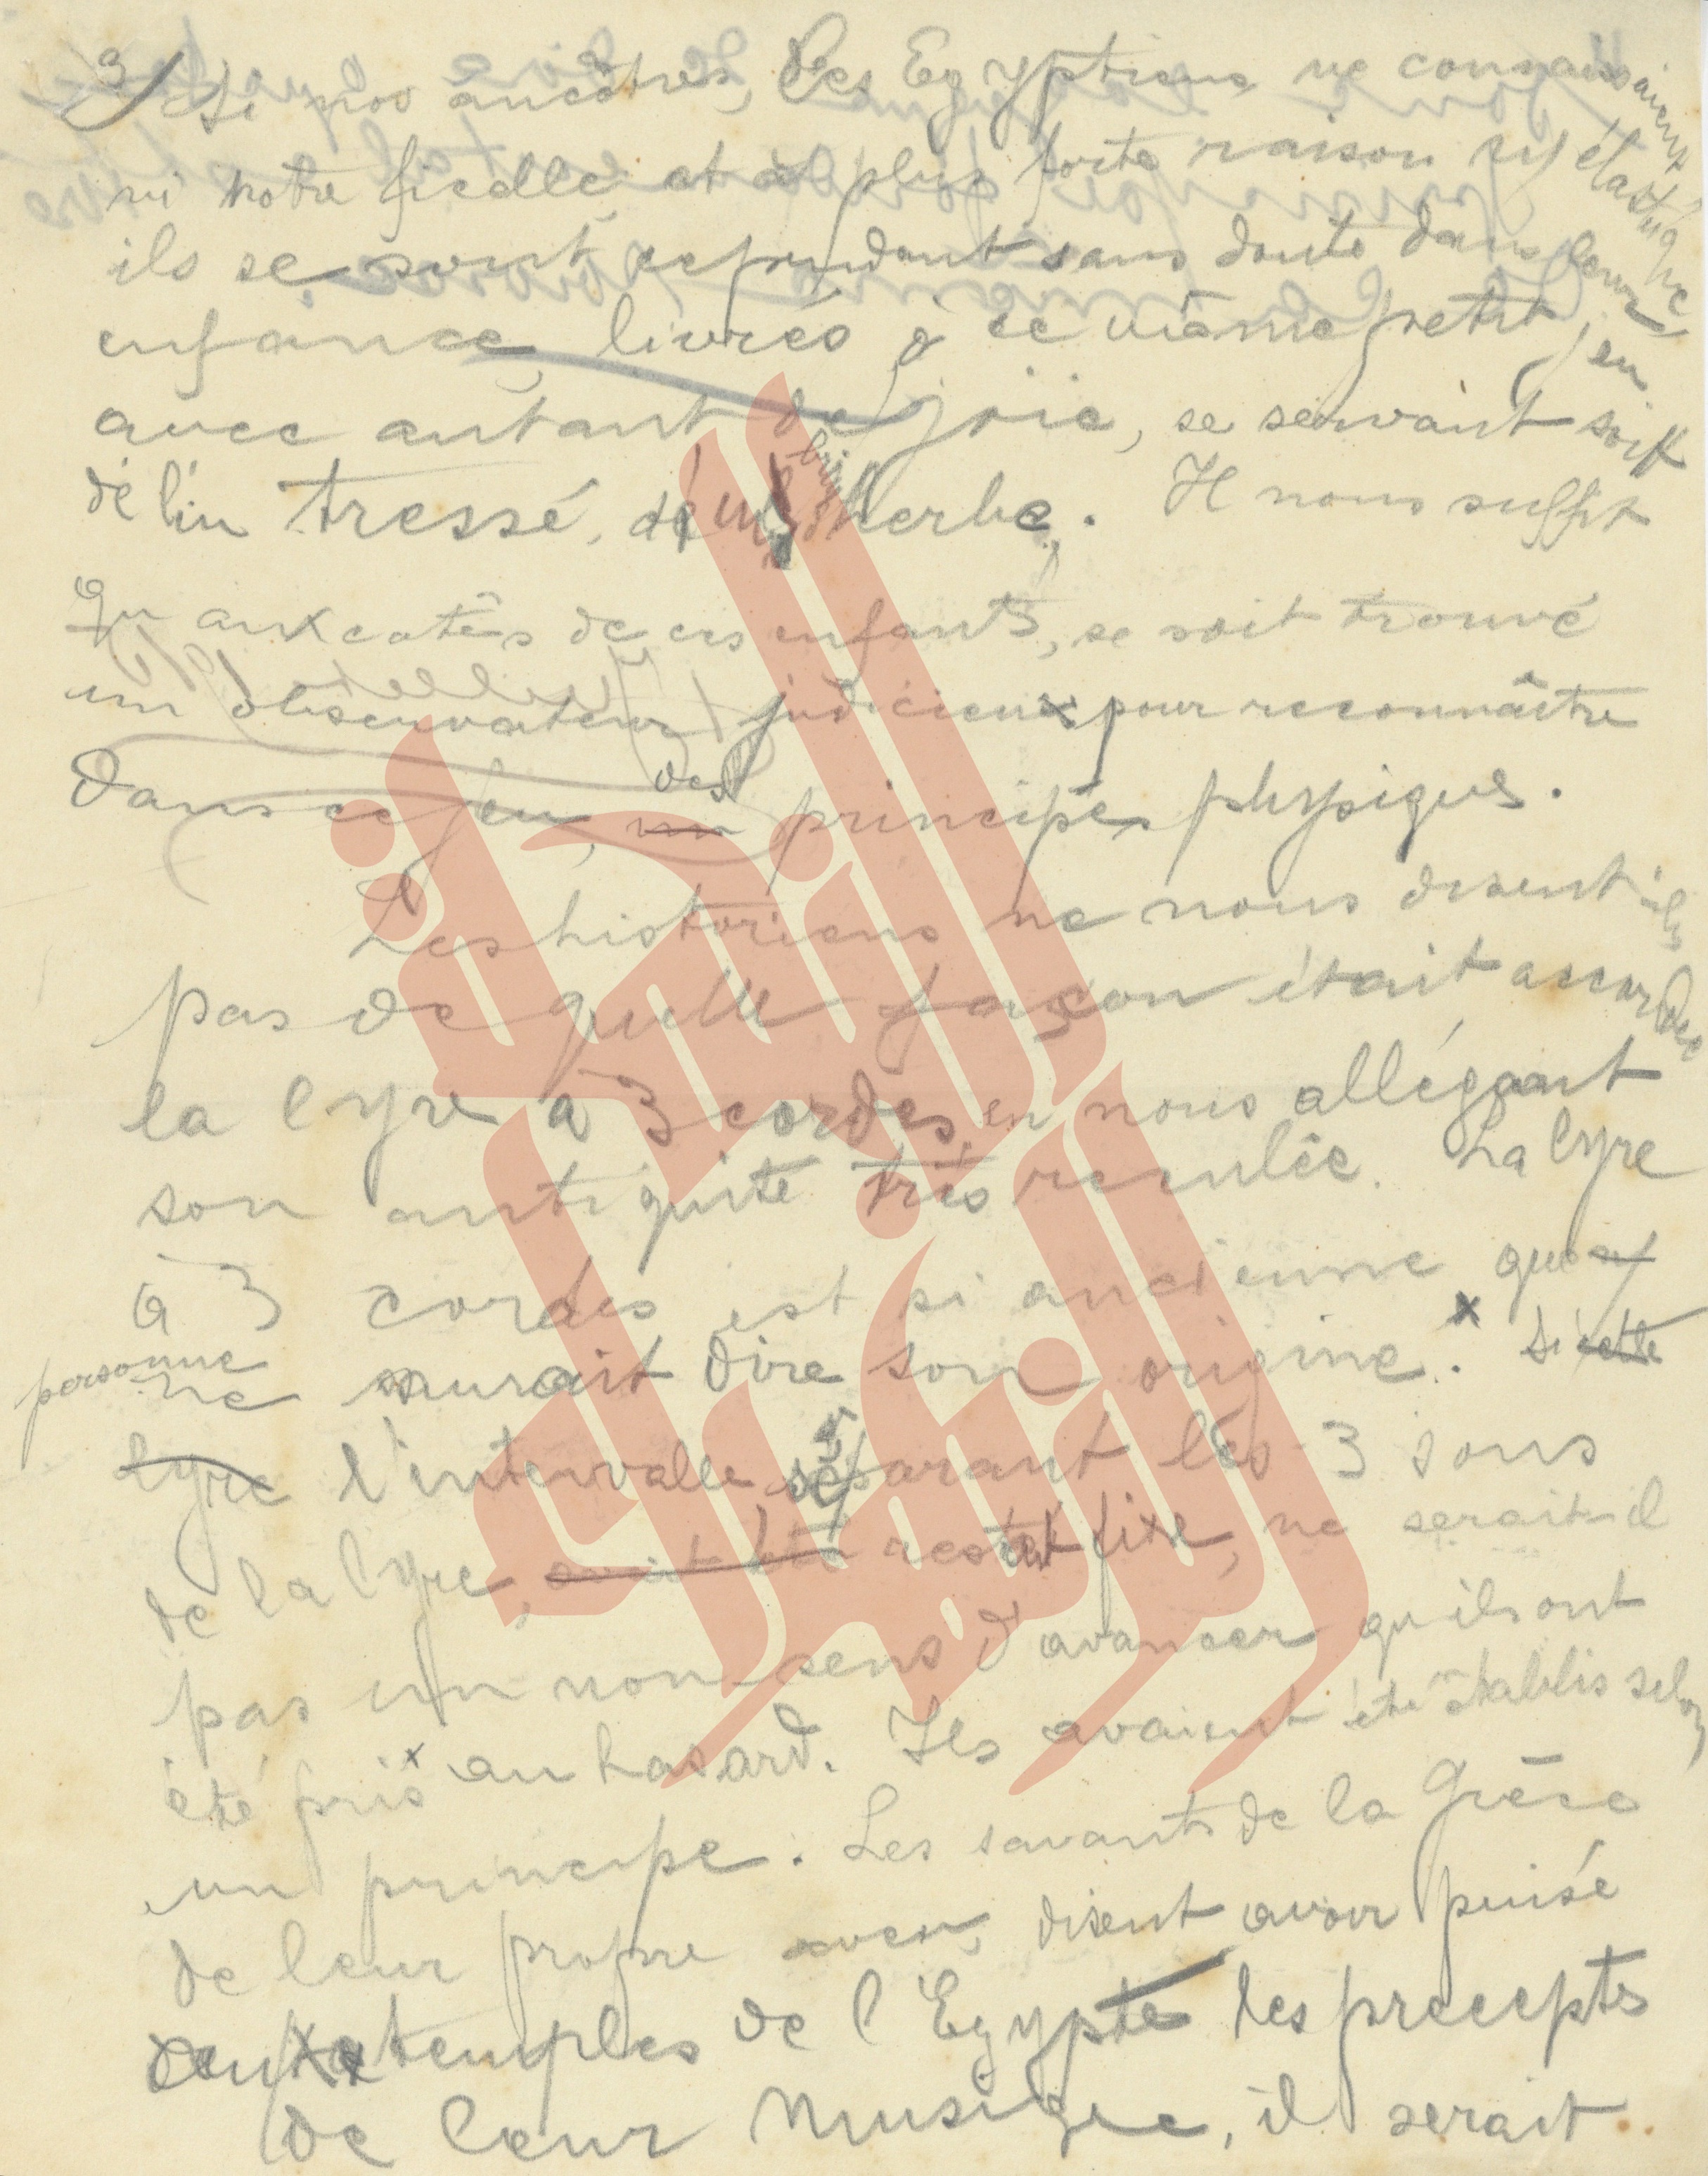 3/ Si nos ancêtres, les Egyptiens ne connaissaient
ni notre ficelle et à plus forte raison ni élastique
ils se sont cependant sans doute dans leur
enfance, livrés à ce même petit jeu
avec autant de joie, se servant soit
de lin tressé, d'un brin d'herbe. Il nous suffit
qu'aux cotés de ces enfants, se soit trouvé
un observateur judicieux pour reconnaître
dans ce jeu, un des principes physiques.
Les historiens ne nous disent ils
pas de quelle façon était accordée
la lyre à 3 cordes, en nous allégant
son antiquité très reculée. La lyre
à 3 cordes est si ancienne que
personne ne saurait dire son origine. x Si cette
lyre l'intervalle séparant les 3 sons
de la lyre, avait été restait fixe, ne serait-il
pas un non sens d'avancer qu'ils ont
été pris au hasard. Ils avaient été établis selon
un principe. Les savants de la Grèce
de leur propre aveu, disent avoir puisé
aux temples de l'Egypte les preceptes
de leur musique, il serait